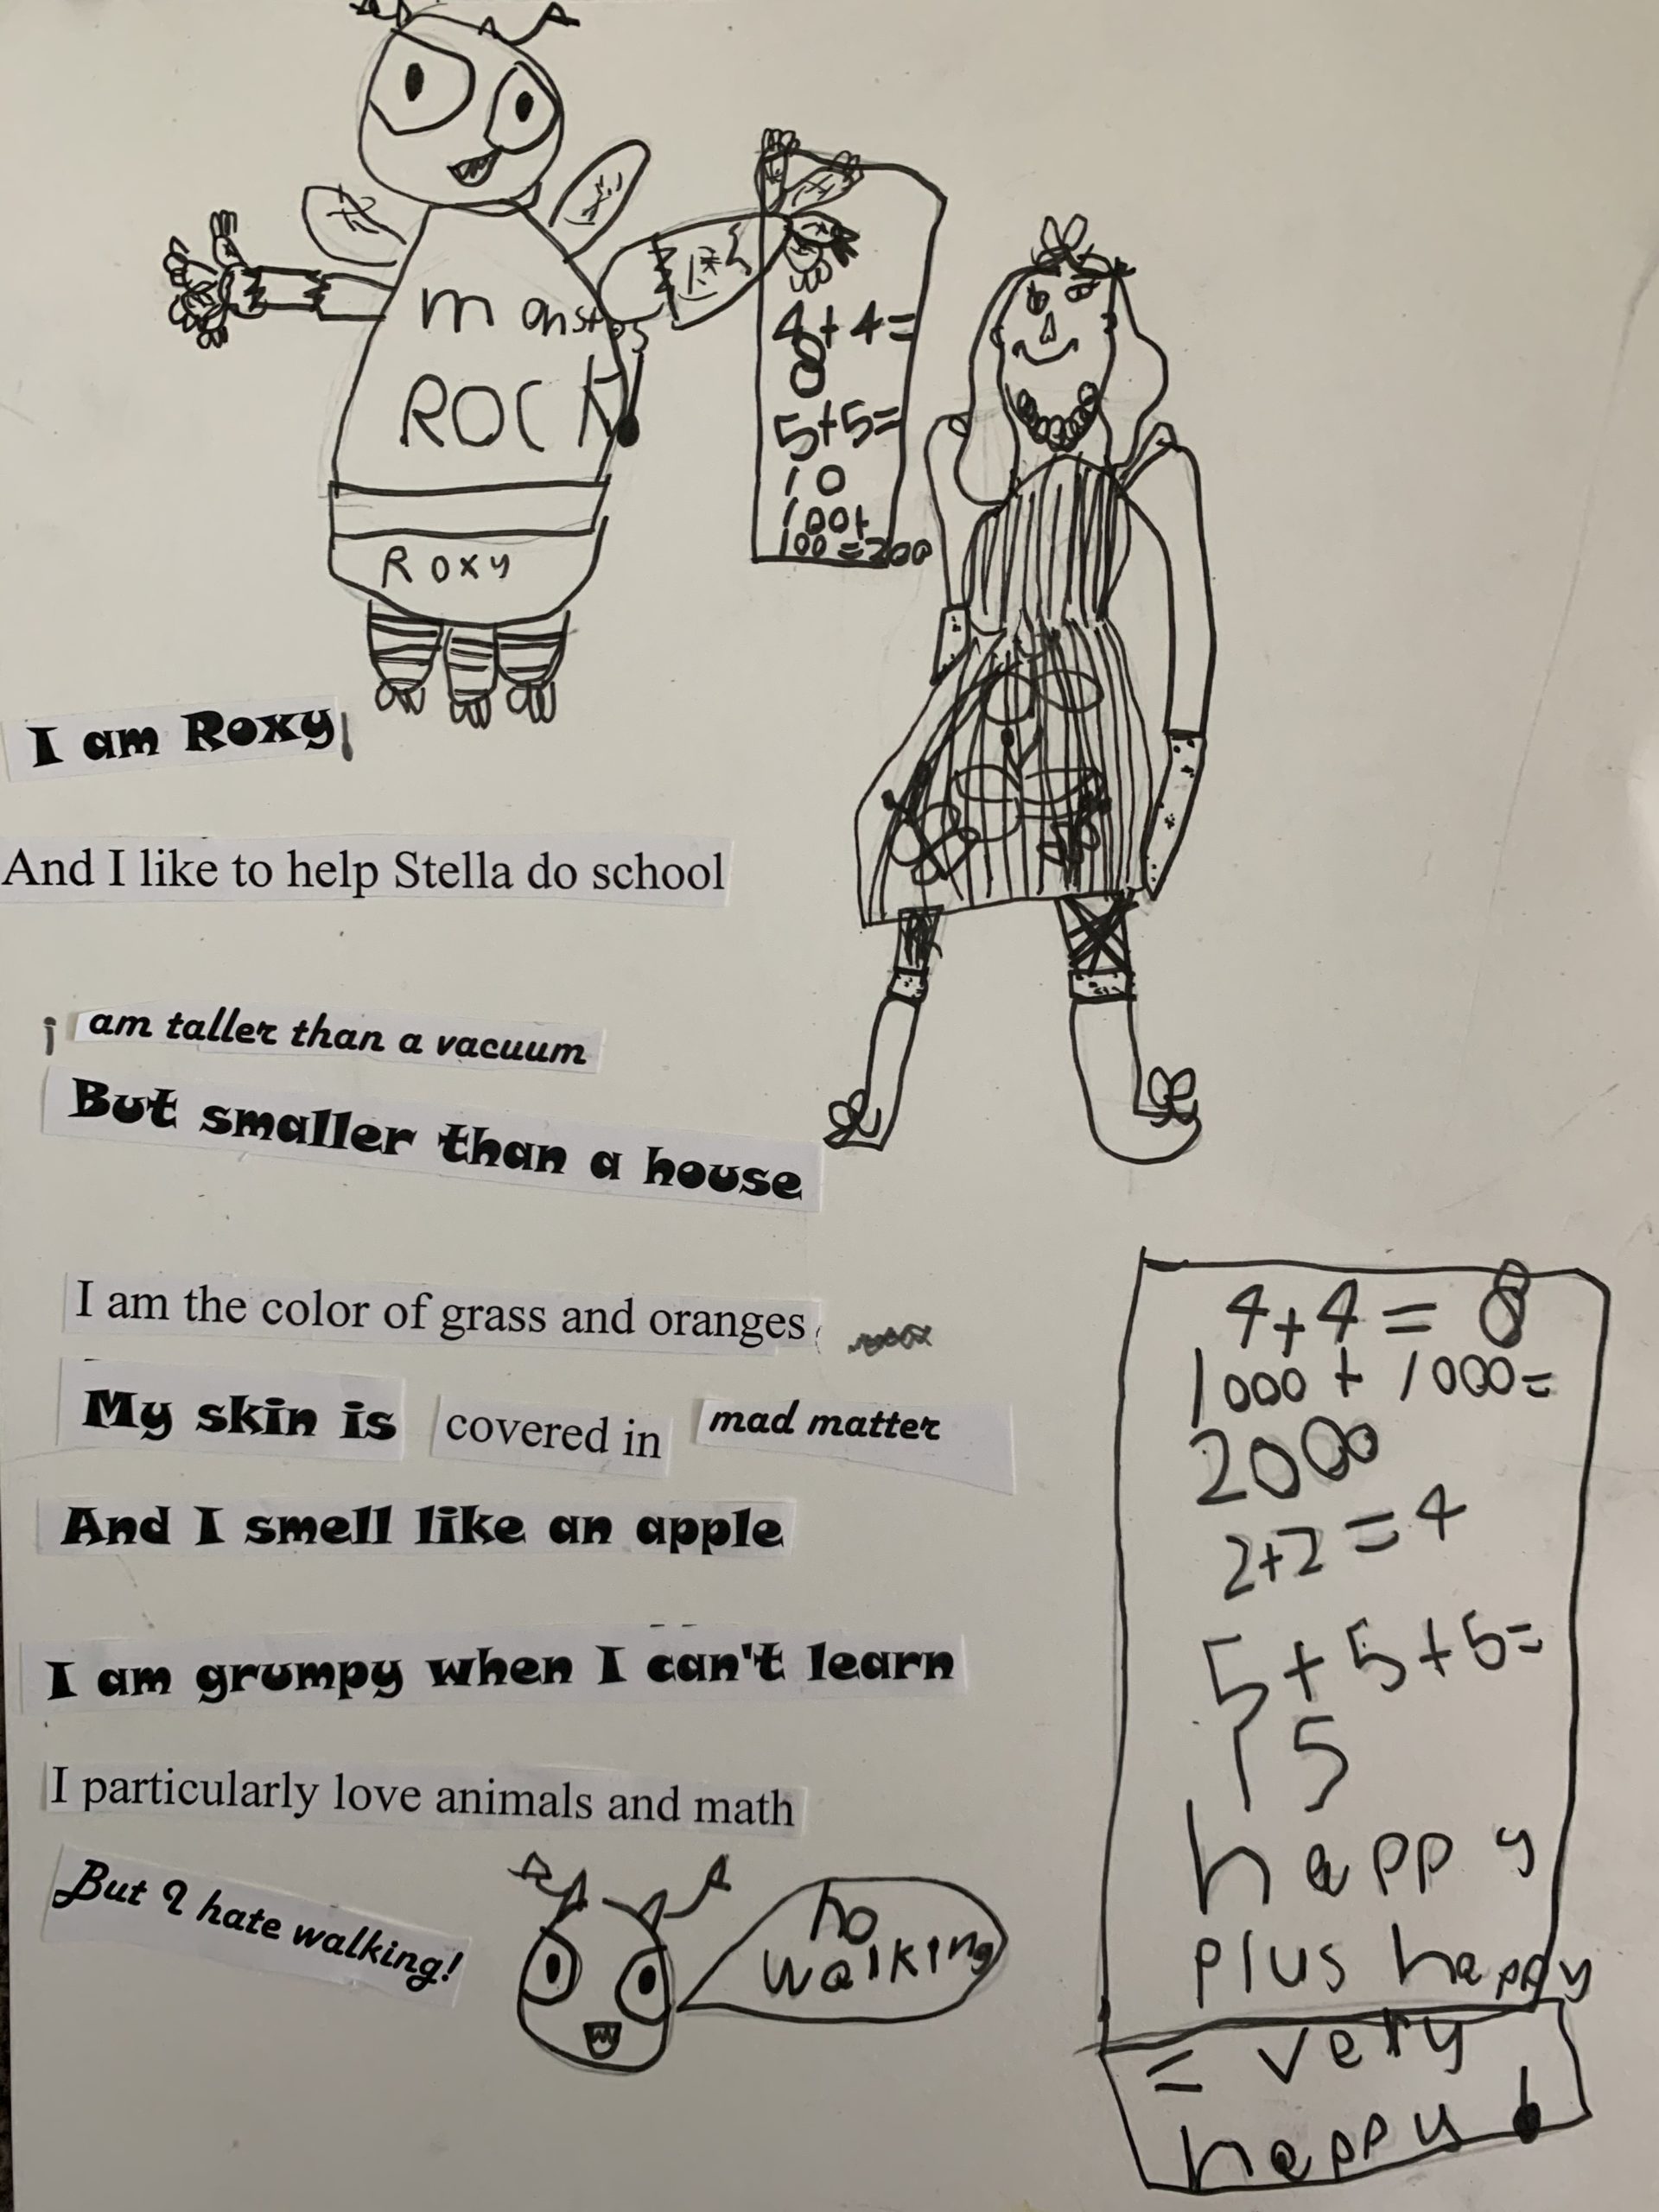 monsters
ROCK!
ROXY
4+4=
8
5+5=
10
100+
100=200
I am Roxy
And I like to help Stella do school
i am taller than a vacuum
But smaller than a house
I am the color of grass and oranges
My skin is covered in mad matter
And I smell like an apple
I am grumpy when I can't learn
I particularly love animals and math
But I hate walking!
no
walking
4+4=8
1000+1000=
2000
2+2=4
5+5+5=
15
happy
plus happy
= very
happy!